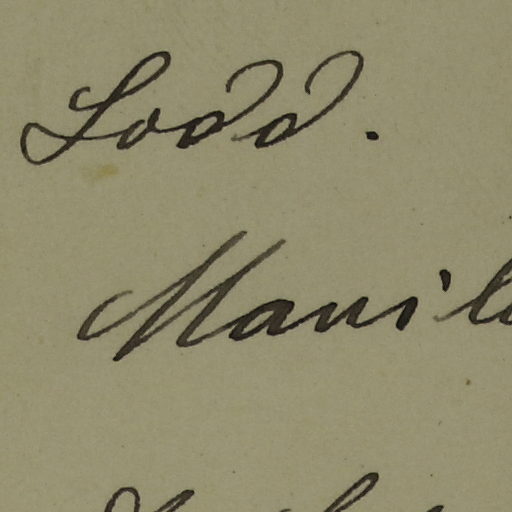 Lodd.
Manil